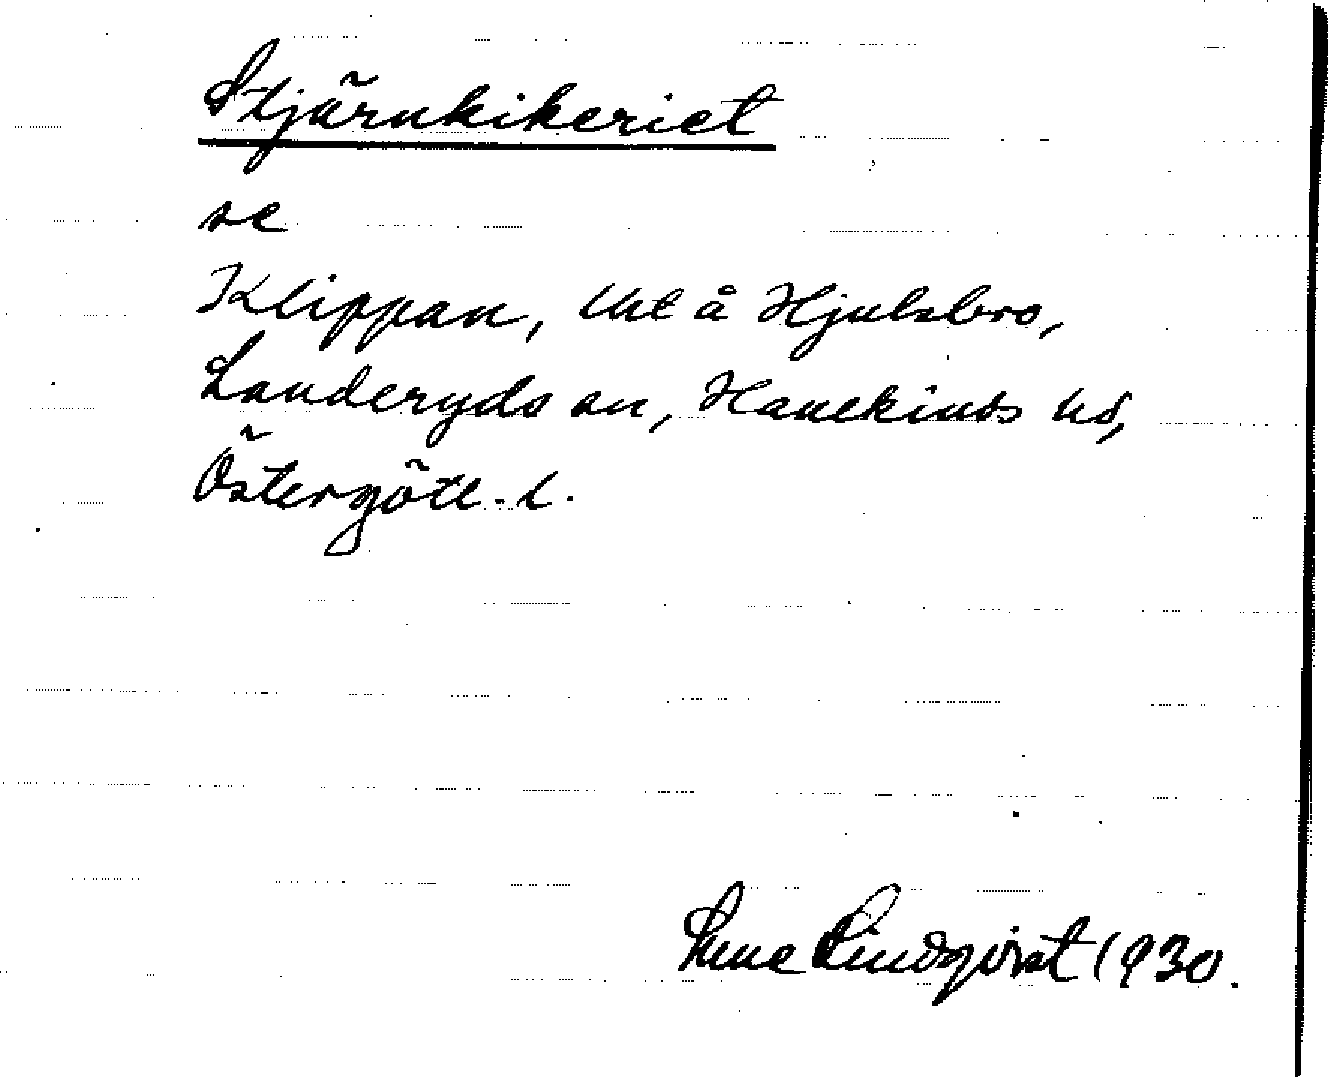 Stjärnkikeriet
se
Klippan, lht å Hjulsbro,
Landeryds sn, Hanekinds hd,
Östergötl. l.
Sune Lindqvist 1930.